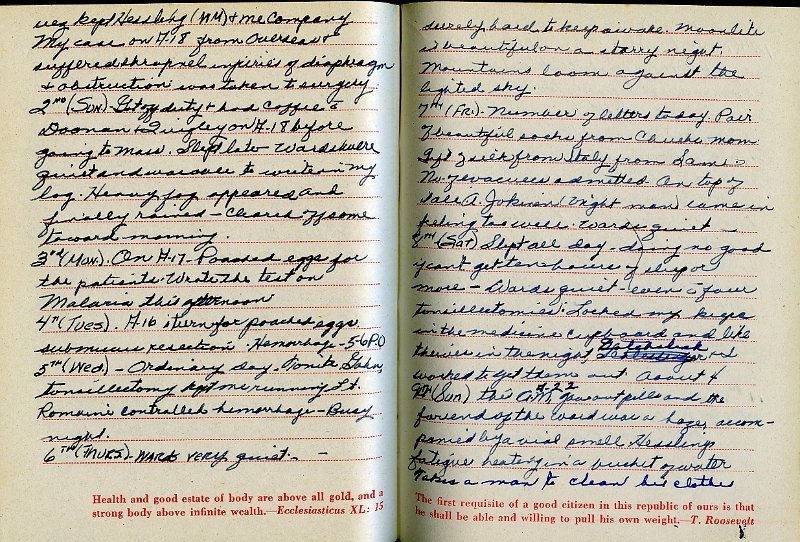 kept Hessling (NM) + me Company
My case on F.18 from Overseas +
suffered shrapnel injuries of diaphragm
+ obstruction was taken to surgery.
2nd (Sun) Got off duty + had Coffee to
Doonan + Quigley on F.18 before
going to Mass. Slept late. Wards were
quiet and was over to write in my
log. Heavy fog appeared and
finally rained – cleared off some
toward morning.
3rd (Mon). On F.17. Poached eggs for
the patients. Wrote the test on
Malaria this afternoon
4th (Tues). F.16 poached eggs
submucus resection. Hemorrhage – 5-6 P.O
5th (Wed) – Ordinary day.
tonsillectomy kept me running Lt.
Romaine controlled hemorrhage – Busy
night.
6th (Thurs) – Ward very quiet. –
Health and good estate of body are above all gold, and a
strong body above infinite wealth.—Ecclesiasticus XL: 15
surely hard to keep awake. Moonlite
is beautiful on a starry night.
Mountains loom against the
lighted sky.
7th (Fri). Number of letters to day. Pair
of beautiful socks from Chuck's mom
Gift of silk from Italy from
No. of evacuees admitted. On top of
all A. (night man) came in
feeling too well. Wards quiet –
8th (Sat) Slept all day – doing no good
if can't get ten hours of sleep or
more – Wards quiet – even if four
tonsillectomies. Locked my keys
in the medicine cupboard and like
thieves in the night and
worked to get them out. About 4
9th (Sun) this A.M. and the
far end of the ward was a haze, accom-
panied by a vial smell. Hessling's
fatigue heating in a bucket of water
Takes a man to clean his clothes
The first requisite of a good citizen in this republic of ours is that
he shall be able and willing to pull his own weight.—T. Roosevelt